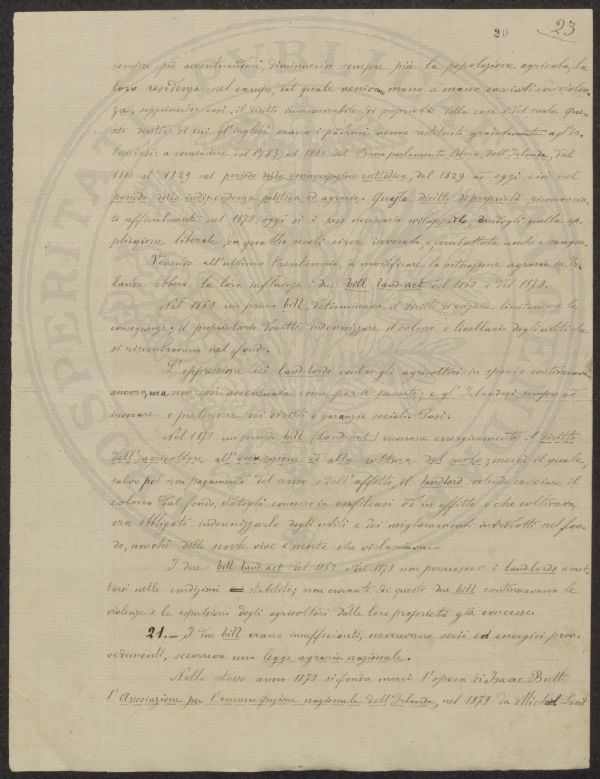 20 23
sempre più accentuandosi, diminuirono sempre più la popolazione agricola, la
loro residenza nel campo, dal quale venivano mano a mano cacciati con violen-
za, sopprimendo così, il diritto immemorabile di proprietà della casa e del suolo. Que-
sti diritti di cui gl'inglesi erano i padroni venne restituito gradatamente agl'ir-
landesi: a cominciare dal 1783 al 1800 dal Primo parlamento libero dell'Irlanda, dal
1810 al 1829 nel periodo della emancipazione cattolica, dal 1829 ad oggi cioè nel
periodo della indipendenza politica ed agraria. Questo diritto di proprietà riconosciu-
to ufficialmente nel 1879 oggi si è reso necessario svilupparlo, dandogli quella ap-
plicazione liberale, da quattro secoli circa invocata, e combattuta anche a sangue.
Venendo all'ultimo trentennio, a modificare la situazione agraria in Ir-
landa ebbero la loro influenza i due bill land-act del 1860 e del 1879.
Nel 1860 un primo bill, determinava il diritto di evizione limitandone le
conseguenze; il proprietario dovette indennizzare il colono o livellario degli utili che
si riscontravano nel fondo.
L'oppressione dei land-lords contro gli agricoltori in specie continuava
ancora, ma non così accentuata come per il passato; e gl'Irlandesi sempre ad
invocare e pretendere dei diritti e garanzie sociali. Così.
Nel 1879 un secondo bill (land-act) riconosce energicamente il diritto
dell'agricoltore all'occupazione ed alla coltura del suolo; mercè il quale,
salvo pel non pagamento del censo o dell'affitto, il landlord volendo cacciare il
colono dal fondo, datogli concesso in enfiteusi od in affitto o che coltivava,
era obbligato indennizzarlo degli utili e dei miglioramenti introdotti nel fon-
do, nonchè delle scorte vive e morte che vi lasciava.—
I due bill land-act del 1859 e del 1879 non persuasero i landlords a met-
tersi nelle condizioni stabilite; non curanti di questi due bill continuavano le
violenze e le espulsioni degli agricoltori dalle loro proprietà già concesse.
21.— I due bill erano insufficienti, occorrevano serii ed energici prov-
vedimenti, occorreva una legge agraria nazionale.
Nello stesso anno 1879 si fonda mercè l'opera di Isaac Butt
l'Associazione per l'emancipazione nazionale dell'Irlanda, nel 1879 da Michael Davit